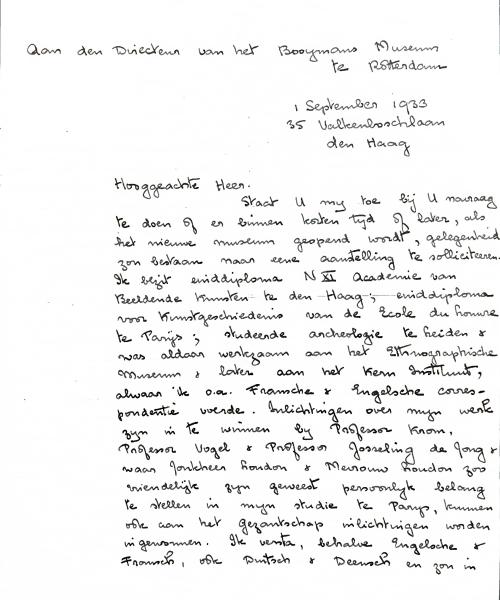 Aan den Directeur van het Booymans Museum
te Rotterdam
1 September 1933
35 Valkenboschlaan
den Haag
Hooggeachte Heer.
Staat U my toe bij U navraag
te doen of er binnen korten tijd of later, als
het nieuwe museum geopend wordt, gelegenheid
zou bestaan naar eene aanstelling te solliciteeren.
Ik bezit einddiploma N XI Academie van
Beeldende Kunsten te den Haag; einddiploma
voor Kunstgeschiedenis van de Ecole du Louvre
te Parijs; studeerde archeologie te Leiden &
was aldaar werkzaam aan het Ethnographische
Museum & later aan het Kern Instituut,
alwaar ik o.a. Fransche & Engelsche corres-
pondentie voerde. Inlichtingen over mijn werk
zyn in te winnen by Professor Krom,
Professor Vogel & Professor Josseling de Jong &
waar Jonkheer Loudon & Mevrouw Loudon zoo
vriendelijk zyn geweest persoonlyk belang
te stellen in mijn studie te Parys, kunnen
ook aan het gezantschap inlichtingen worden
ingewonnen. Ik versta, behalve Engelsche &
Fransch, ook Duitsch & Deensch en zou in